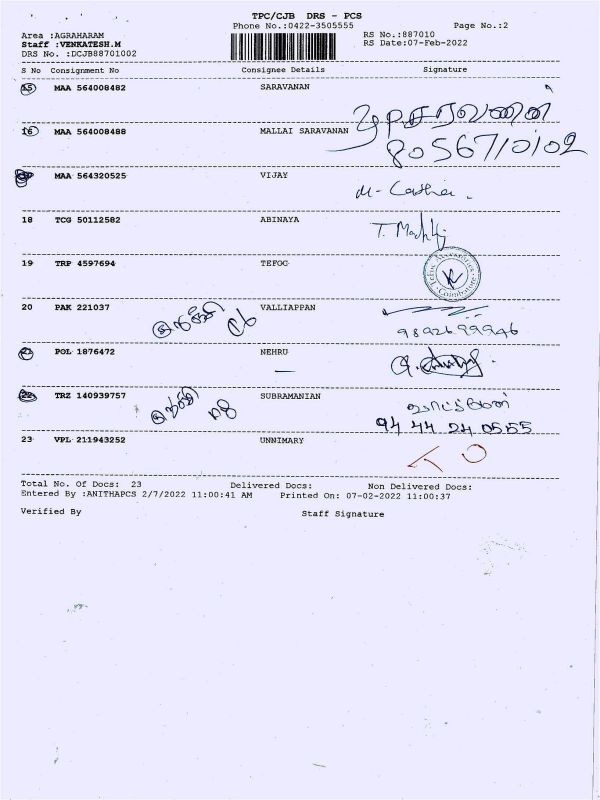 TPC/CJB DRS - PCS
Phone No.:0422-3505555 Page No.:2
Area :AGRAHARAM RS No.:887010
Staff :VENKATESH.M RS Date:07-Feb-2022
DRS No. :DCJB88701002
S No Consignment No Consignee Details Signature
15 MAA 564008482 SARAVANAN
16 MAA 564008488 MALLAI SARAVANAN சரவணன்
8056710102
MAA 564320525 VIJAY
18 TCG 50112582 ABINAYA
19 TRP 4597694 TEFOG
20 PAK 221037 VALLIAPPAN
9892699946
21 POL 1876472 NEHRU
22 TRZ 140939757 SUBRAMANIAN
94 44 24 0555
23 VPL 211943252 UNNIMARY
Total No. Of Docs: 23 Delivered Docs: Non Delivered Docs:
Entered By :ANITHAPCS 2/7/2022 11:00:41 AM Printed On: 07-02-2022 11:00:37
Verified By Staff Signature